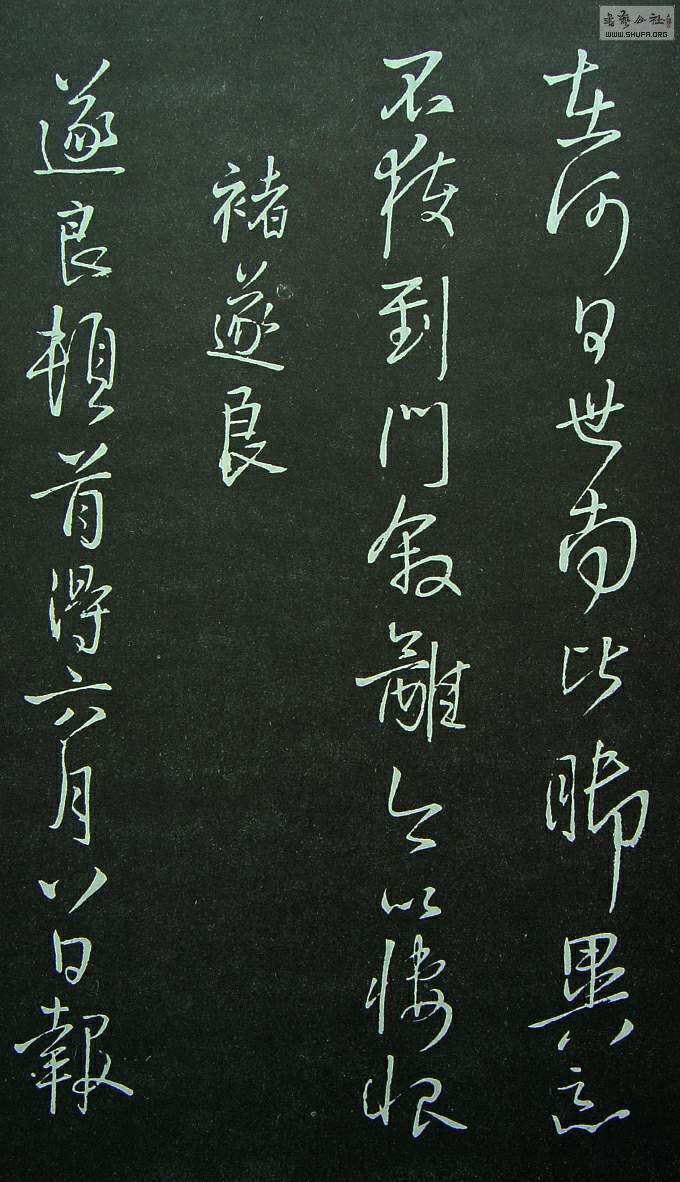 在何日世南比脚異
不獲到門叙離今以悽恨
褚遂良
遂良頓首得六月八日報
書藝公社
WWW.SHUFA.ORG